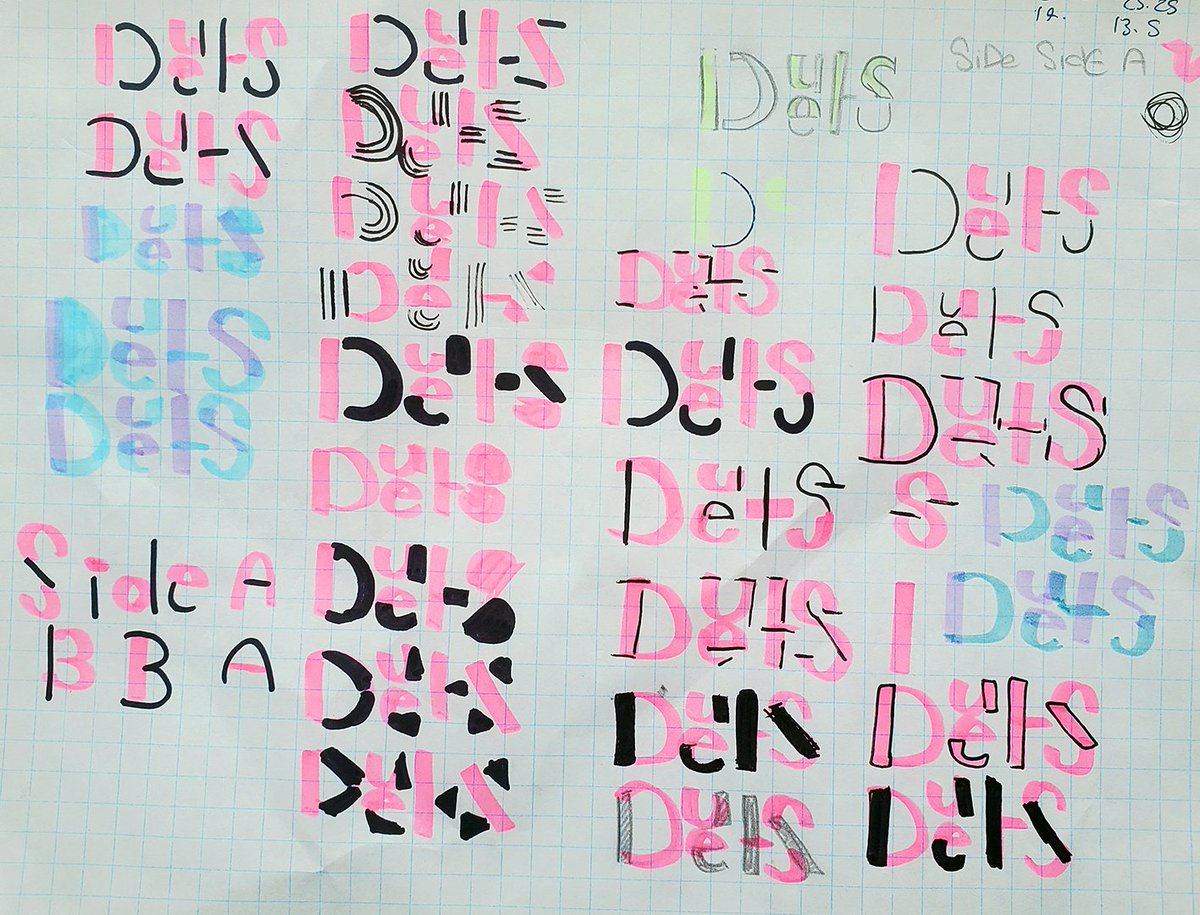 Duets
Duets
Duets
Duets
Duets
Side A
B B A
Duets
Duets
Duets
Duets
Duets
Duets
Duets
Duets
Duets
13.5
SiDe SidE A
Duets
D
Duets
Duets
Duets
Duets
Duets
Duets
Duets
Duets
Duets
S Duets
Duets
Duets
Duets